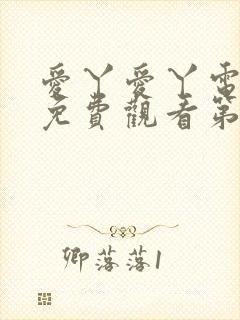 愛丫愛丫電
免費觀看第
卿落落1